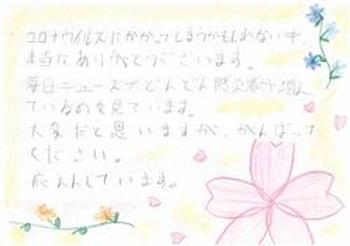 コロナウイルスにかかってしまうかもしれない中、
本当にありがとうございます。
毎日ニュースでどんどん感染者が増え
ているのを見ています。
大変だと思いますが、がんばって
ください。
応えんしています。